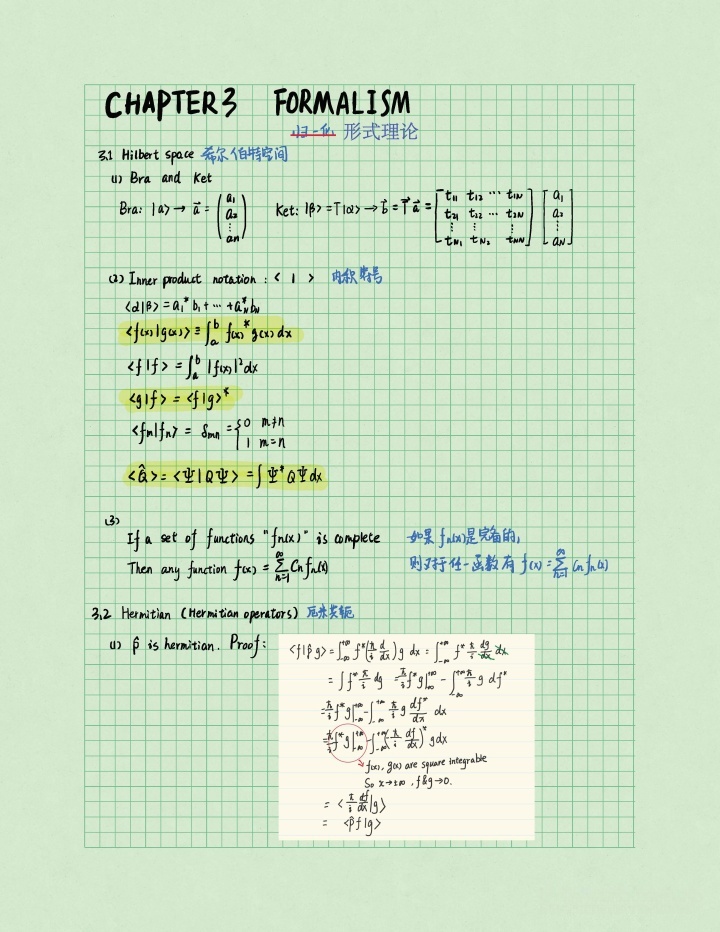 CHAPTER 3 FORMALISM
归一化 形式理论
3.1 Hilbert space 希尔伯特空间
(1) Bra and Ket
Bra: |a> → a⃗ = (a₁ a₂ ⋮ aN) Ket: |β> = T|α> → b⃗ = T⃗ a⃗ = [t₁₁ t₁₂ ⋯ t₁N t₂₁ t₂₂ ⋯ t₂N ⋮ ⋮ ⋮ tN₁ tN₂ tNN] [a₁ a₂ ⋮ aN]
(2) Inner product notation : < | > 内积符号
<α|β> = a₁* b₁ + ⋯ + aN* bN
<f(x)|g(x)> ≡ ∫ₐᵇ f(x)* g(x) dx
<f|f> = ∫ₐᵇ |f(x)|² dx
<g|f> = <f|g>*
<fm|fn> = δmn = {0 m≠n
1 m=n
<Q̂> = <Ψ|QΨ> = ∫ Ψ* Q Ψ dx
(3)
If a set of functions "fn(x)" is complete 如果 fn(x) 是完备的,
Then any function f(x) = ∑ₙ₌₁^∞ Cn fn(x) 则对于任一函数有 f(x) = ∑ₙ₌₁^∞ Cn fn(x)
3.2 Hermitian (Hermitian operators) 厄米共轭
(1) p̂ is hermitian. Proof:
<f|p̂ g> = ∫₋∞^+∞ f*(ħ/i d/dx) g dx = ∫₋∞^+∞ f* ħ/i dg/dx dx
= ∫ f* ħ/i dg = ħ/i f* g|₋∞^+∞ - ∫₋∞^+∞ ħ/i g df*
= ħ/i f* g|₋∞^+∞ - ∫₋∞^+∞ ħ/i g df*/dx dx
= ħ/i f* g|₋∞^+∞ - ∫₋∞^+∞ (ħ/i df/dx)* g dx
f(x), g(x) are square integrable
So x→±∞, f&g→0.
= <ħ/i df/dx|g>
= <p̂ f|g>